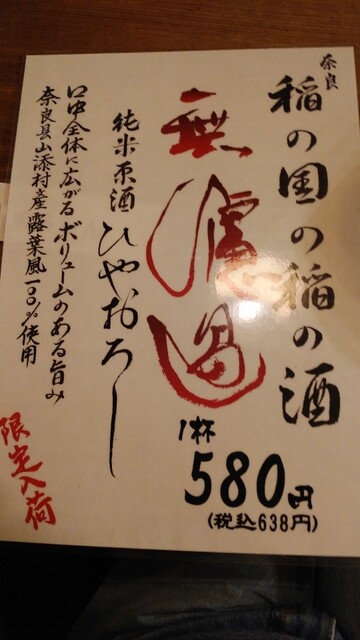 奈良
稲の国の稲の酒
無濾過
純米原酒ひやおろし
口中全体に広がるボリュームのある旨み
奈良県山添村産露葉風一〇〇%使用
限定入荷
1杯
580円
(税込638円)